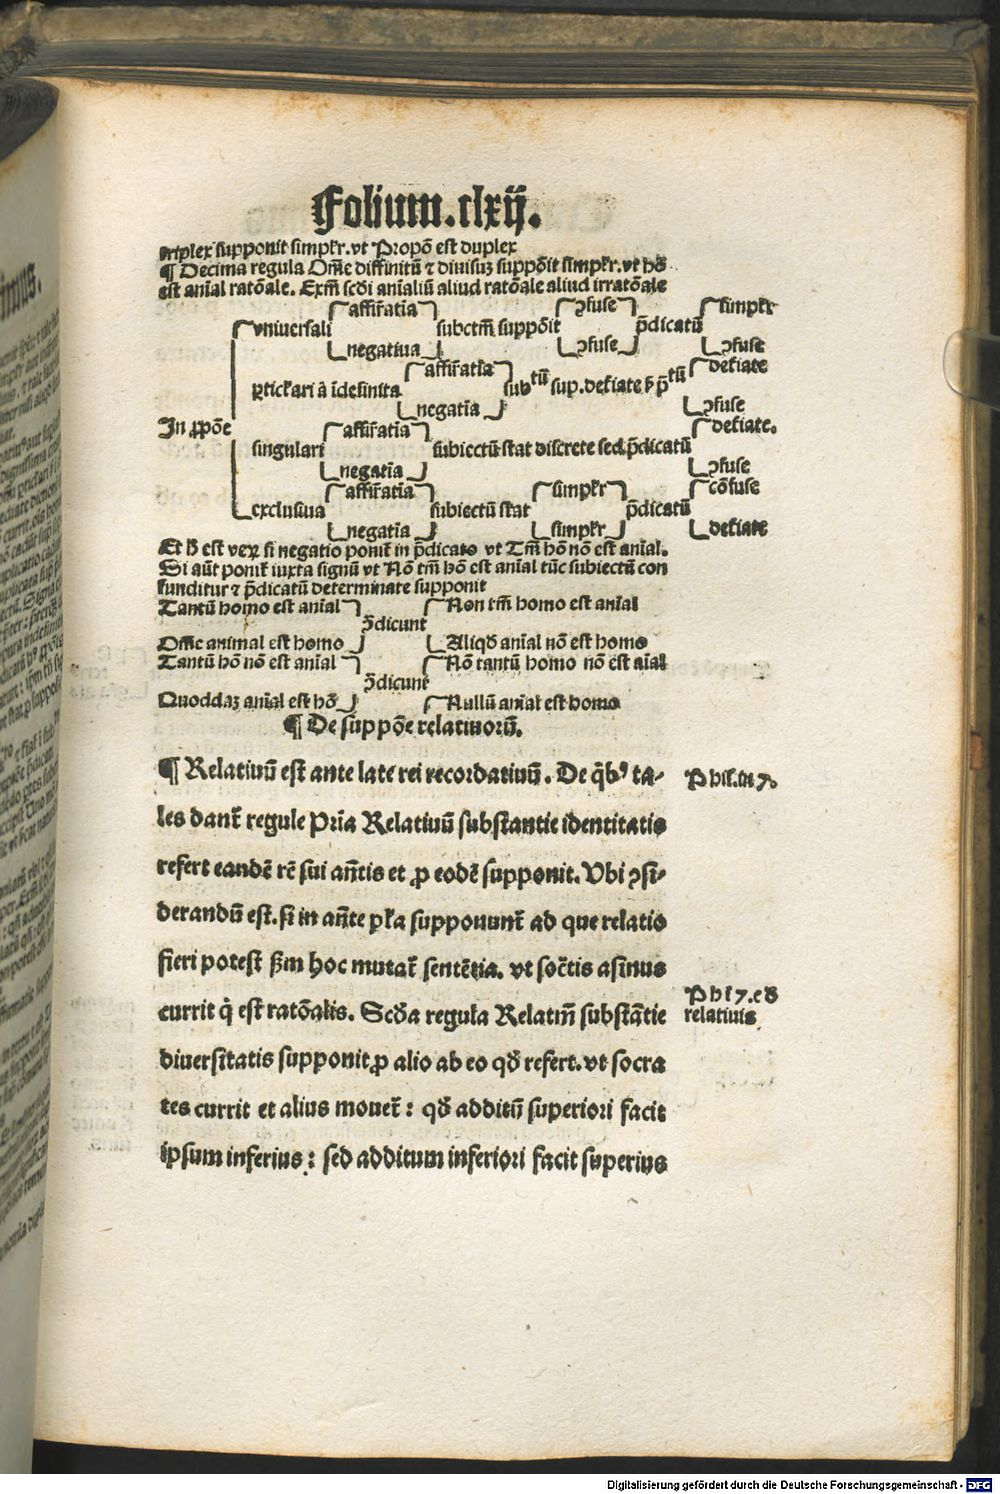 Folium.clxij.
triplex supponit simplr̄.vt Propō est duplex
¶ Decima regula Om̄e diffinitū ⁊ diuisuꝫ suppōit simplr̄.vt hō
est aīal ratōale. Exm̄ scdi aīaliū aliud ratōale aliud irratōale
affirr̄atia ꝯfuse simplr̄
vniuersali subctm̄ suppōit p̄dicatū
negatiua ꝯfuse ꝯfuse
affirr̄atia det̄iate
ꝑticlari ā īdefinita subtū sup.det̄iate ß p̄tū
negatīa ꝯfuse
In ꝓpōe affirr̄atīa det̄iate.
singulari subiectū stat discrete sed p̄dicatū
negatīa ꝯfuse
affirr̄atīa simplr̄ cōfuse
exclusiua subiectū stat p̄dicatū
negatīa simplr̄ det̄iate
Et ħ est veꝝ si negatio ponit̄ in p̄dicato vt Tm̄ hō nō est aīal.
Si aūt ponit̄ iuxta signū vt Nō tm̄ hō est aīal tūc subiectū con
funditur ⁊ p̄dicatū determinate supponit
Tantū homo est aīal Non tm̄ homo est aīal
ꝯ̄dicunt
Om̄e animal est homo Aliqđ aīal nō est homo
Tantū hō nō est aīal Nō tantū homo nō est aīal
ꝯ̄dicunt
Quoddaꝫ aīal est hō Nullū aīal est homo
¶ De suppōe relatiuorū.
¶ Relatiuū est ante late rei recordatiuū. De q̄bꝰ ta-
Phil.in 7.
les dant̄ regule Pria Relatiuū substantie identitatis
refert eandē rē sui an̄tis et ꝓ eodē supponit. Vbi ꝯsi-
derandū est.si in an̄te pl̄a supponunt̄ ad que relatio
fieri potest ßm hoc mutat̄ sentētia. vt soc̄tis asinus
Phi 7.eđ
currit q̇ est ratōalis. Scđa regula Relatm̄ substātie
relatiuis
diuersitatis supponit ꝓ alio ab eo qđ refert.vt socra
tes currit et alius mouet̄ : qđ additū superiori facit
ipsum inferius : sed additum inferiori facit superius
Digitalisierung gefördert durch die Deutsche Forschungsgemeinschaft - DFG